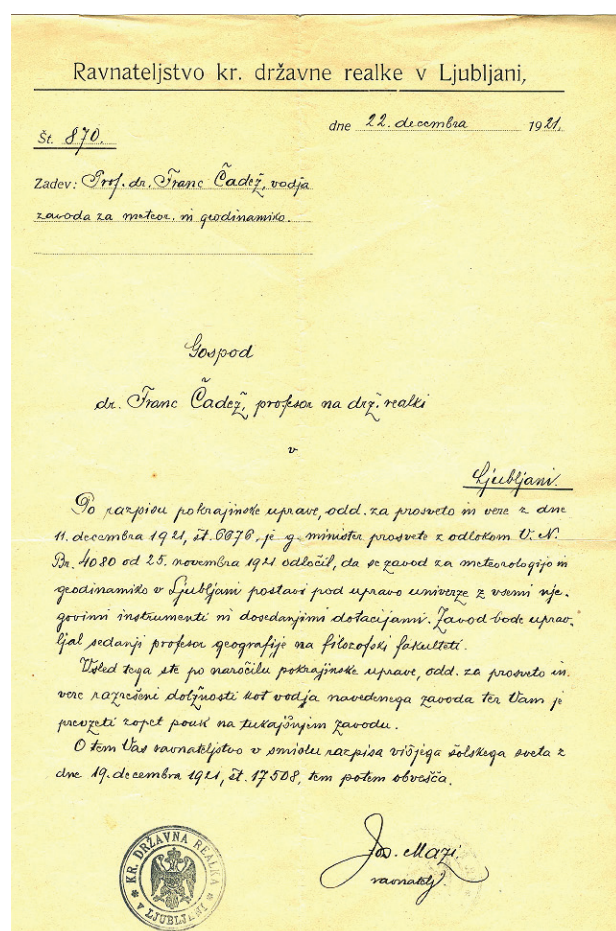 Ravnateljstvo kr. državne realke v Ljubljani,
dne 22. decembra 1921.
Št. 870.
Zadev: Prof. dr. Franc Čadež, vodja
zavoda za meteor. in geodinamiko.
Gospod
dr. Franc Čadež, profesor na drž. realki
v
Ljubljani.
Po razpisu pokrajinske uprave, odd. za prosveto in vere z dne
11. decembra 1921, št. 6676, je g. minister prosvete z odlokom U. N.
Br. 4080 od 25. novembra 1921 odločil, da se zavod za meteorologijo in
geodinamiko v Ljubljani postavi pod upravo univerze z vsemi nje-
govimi instrumenti in dosedanjimi dotacijami. Zavod bode uprav-
ljal sedanji profesor geografije na filozofski fakulteti.
Vsled tega ste po naročilu pokrajinske uprave, odd. za prosveto in
vere razrešeni dolžnosti kot vodja navedenega zavoda ter Vam je
prevzeti zopet pouk na tukajšnjem zavodu.
O tem Vas ravnateljstvo v smislu razpisa višjega šolskega sveta z
dne 19. decembra 1921, št. 17508, tem potem obvešča.
Jos. Mazi.
ravnatelj.
KR. DRŽAVNA REALKA
V LJUBLJANI